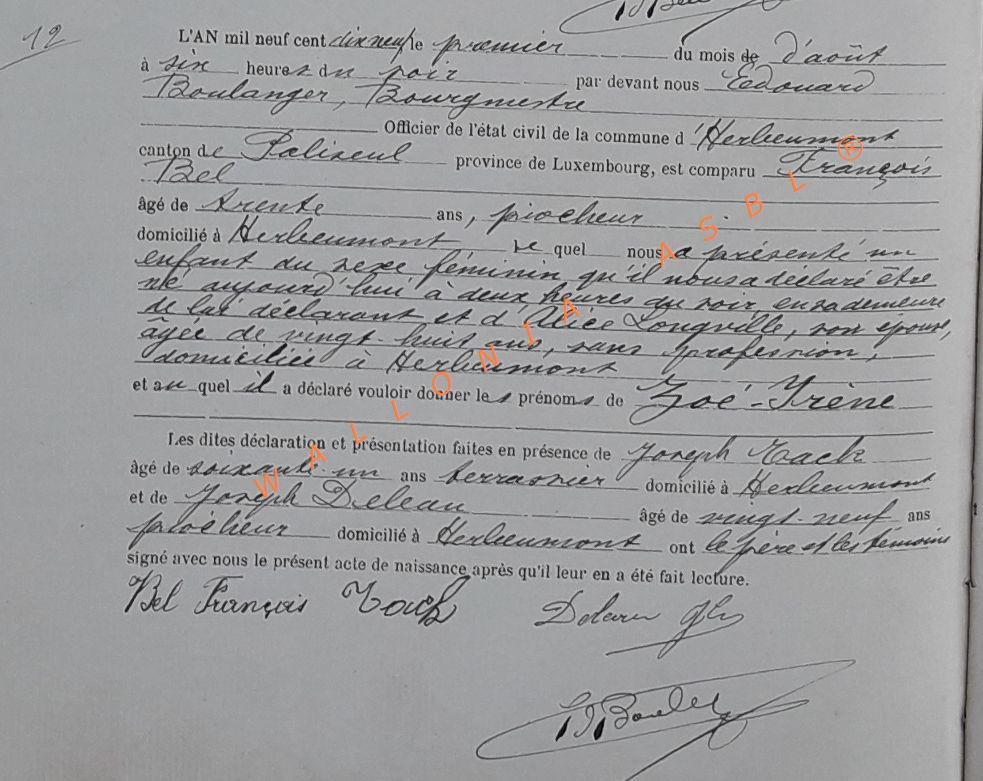 12
L'AN mil neuf cent dix neuf le premier du mois de d'août
à six heures du soir par devant nous Edouard
Boulanger, Bourgmestre
Officier de l'état civil de la commune d'Herbeumont
canton de Paliseul province de Luxembourg, est comparu François
Bel
âgé de trente ans, piocheur
domicilié à Herbeumont le quel nous a présenté un
enfant du sexe féminin qu'il nous a déclaré être
né aujourd'hui à deux heures du soir, en sa demeure
de lui déclarant et d'Alice Longville, son épouse,
âgée de vingt-huit ans, sans profession,
domiciliée à Herbeumont
et au quel il a déclaré vouloir donner les prénoms de Zoé-Irène
Les dites déclaration et présentation faites en présence de Joseph Tack
âgé de soixante-un ans terrassier domicilié à Herbeumont
et de Joseph Deleau âgé de vingt-neuf ans
piocheur domicilié à Herbeumont ont le père et les témoins
signé avec nous le présent acte de naissance après qu'il leur en a été fait lecture.
Bel François Tack
WALLONIA ASBL ®